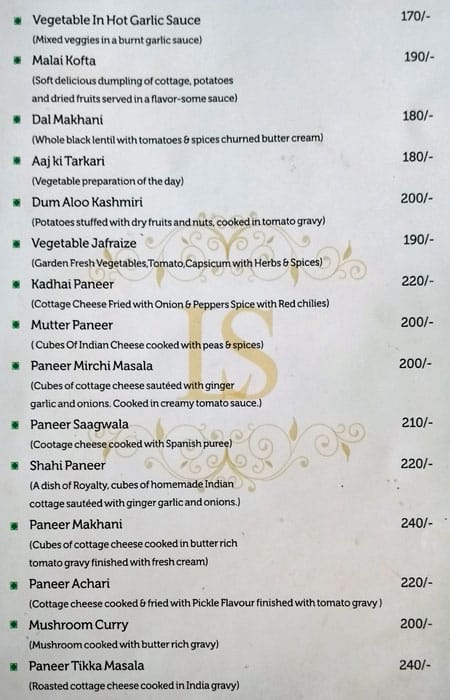 Vegetable In Hot Garlic Sauce 170/-
(Mixed veggies in a burnt garlic sauce)
Malai Kofta 190/-
(Soft delicious dumpling of cottage, potatoes
and dried fruits served in a flavor-some sauce)
Dal Makhani 180/-
(Whole black lentil with tomatoes & spices churned butter cream)
Aaj ki Tarkari 180/-
(Vegetable preparation of the day)
Dum Aloo Kashmiri 200/-
(Potatoes stuffed with dry fruits and nuts, cooked in tomato gravy)
Vegetable Jafraize 190/-
(Garden Fresh Vegetables,Tomato,Capsicum with Herbs & Spices)
Kadhai Paneer 220/-
(Cottage Cheese Fried with Onion & Peppers Spice with Red chilies)
LS
Mutter Paneer 200/-
( Cubes Of Indian Cheese cooked with peas & spices)
Paneer Mirchi Masala 200/-
(Cubes of cottage cheese sautéed with ginger
garlic and onions. Cooked in creamy tomato sauce.)
Paneer Saagwala 210/-
(Cootage cheese cooked with Spanish puree)
Shahi Paneer 220/-
(A dish of Royalty, cubes of homemade Indian
cottage sautéed with ginger garlic and onions.)
Paneer Makhani 240/-
(Cubes of cottage cheese cooked in butter rich
tomato gravy finished with fresh cream)
Paneer Achari 220/-
(Cottage cheese cooked & fried with Pickle Flavour finished with tomato gravy )
Mushroom Curry 200/-
(Mushroom cooked with butter rich gravy)
Paneer Tikka Masala 240/-
(Roasted cottage cheese cooked in India gravy)